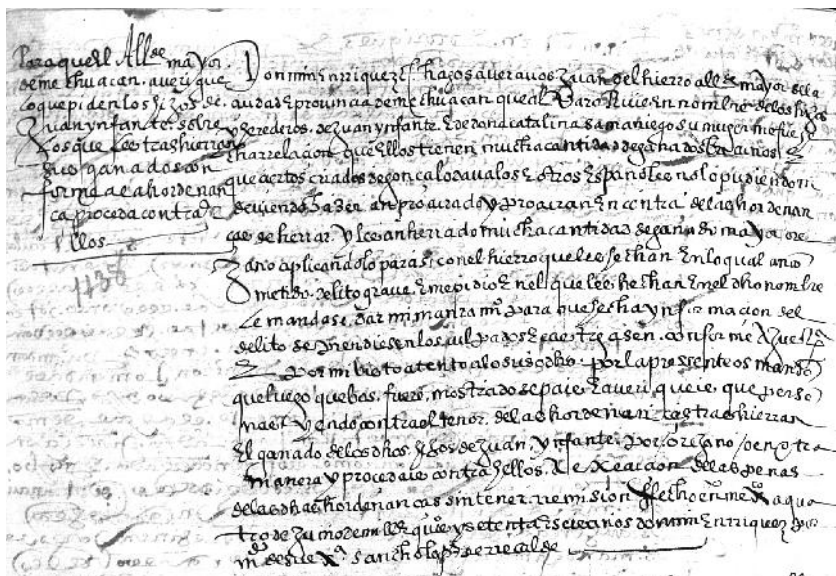 Para quel All de mayor
de mechuacan. averigue
lo que piden los hijos de
Juan ynfante. sobre
los que les trashierran
sus ganados con
forme a la hordenan
ça proceda contra
ellos
1138
Don min Enrriquez Etc. hago saver a vos Juan del hierro alld mayor de la
ciudad E provincia de mechuacan que alvaro Ruiz en nombre de los hijos
y herederos. de Juan ynfante. E de doña catalina samaniego su muger me fue
hecha rrelacion que Ellos tienen mucha cantidad de ganados
que ciertos criados de gonçalo davalos E otros Españoles no lo pudiendo ni
deviendo hazer an procurado y procuran En contra de las hordenan
ças de herrar. y les an herrado mucha cantidad de ganado mayor ore
jano aplicandolo para si con el hierro que les hechan En lo qual an co
metido delito grave. E me pidio En el dho nonbre
le mandase dar mi mandamio para que hecha ynformacion del
delito se prendiesen los culpados E castigasen. conforme a Justa
E por mi visto atento a lo susodho. por la pressente os mando
que luego que vos. fuere. mostrado sepais E averigueis. que perso
nas yendo contra el tenor. de las hordenanças trashierran
El ganado de los dhos. hijos de Juan. ynfante. por orejano / o en otra
manera y procedais contra Ellos. a Execucion de las penas
de las dhas hordenanças sin tener rremision ffecho en mexco a qua
tro de Junio de mill E quis y setenta E seis años don min Enrriquez por
mdo de su exa. sancho lopz de rrecalde